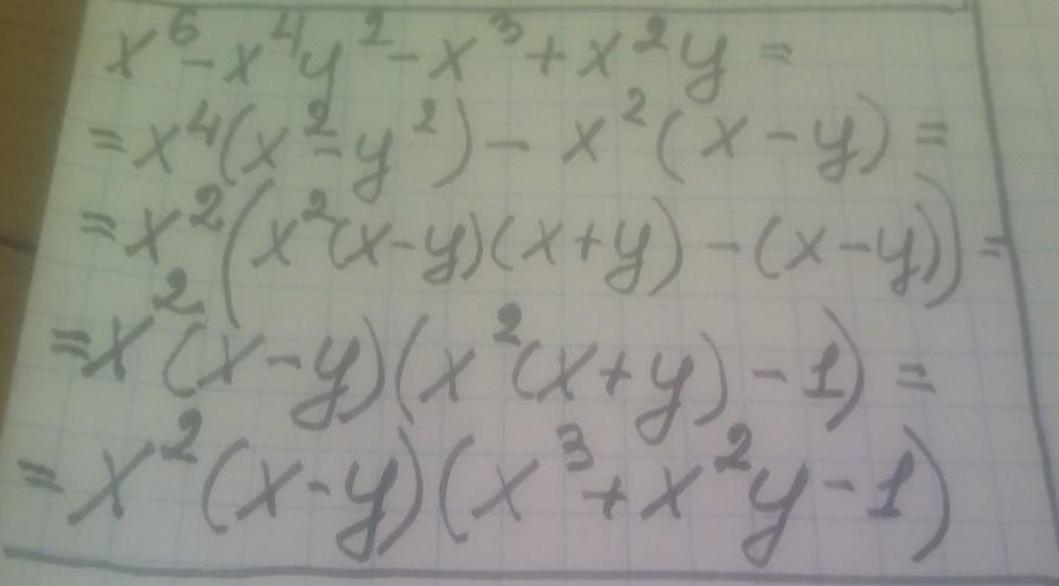 x⁶-x⁴y²-x³+x²y=
=x⁴(x²-y²)-x²(x-y)=
=x²(x²(x-y)(x+y)-(x-y))=
=x²(x-y)(x²(x+y)-1)=
=x²(x-y)(x³+x²y-1)